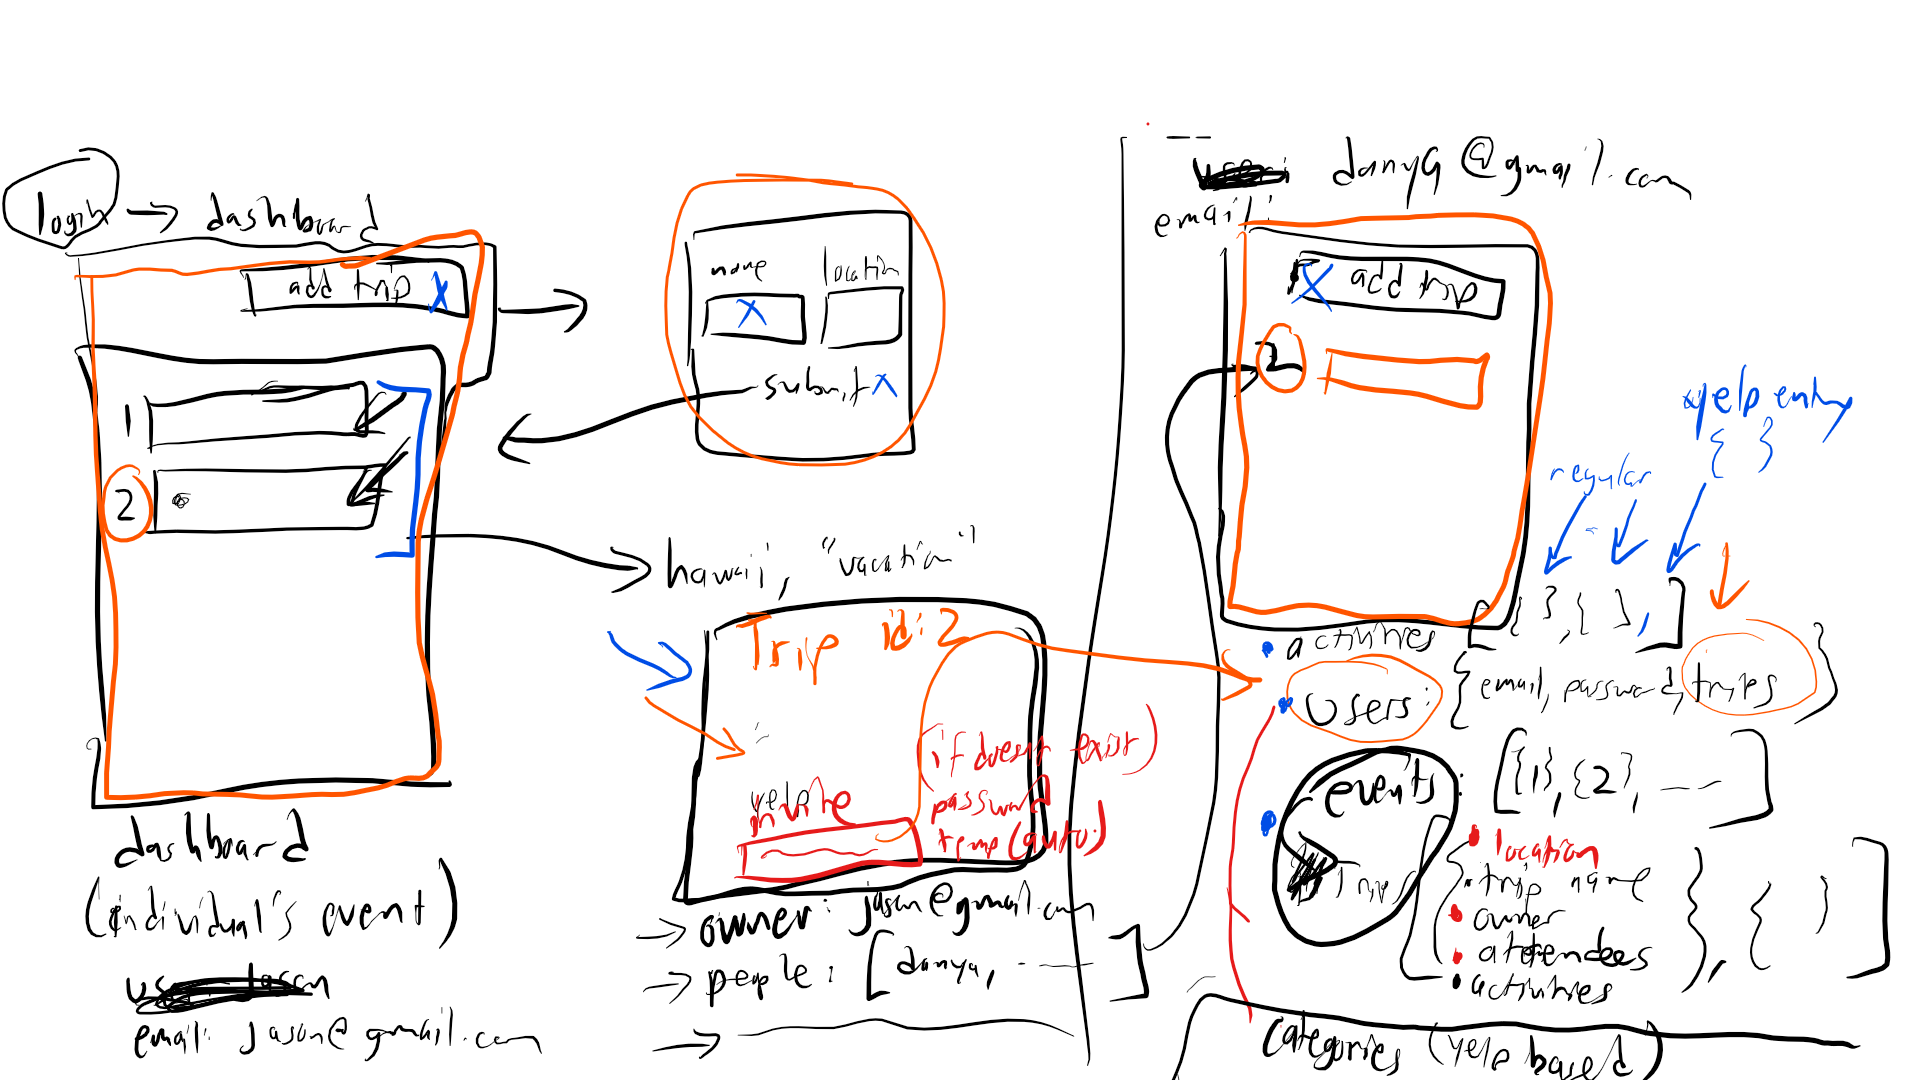 login → dashboard
add trip X
1
2
dashboard
(individual's event)
email: jason@gmail.com
name location
X
submit X
hawaii, "vacation"
Trip id: 2
yelp
invite
(if doesn't exist)
password
temp (auto)
→ owner: jason@gmail.com
→ people: [danya, ---- ]
→
danya@gmail.com
email:
X add trip
2
yelp entry
{ }
regular
• activities [{ }, { }, ]
• users: {email, password, trips}
• events: [{1}, {2}, ---- ]
trips
• location
• trip name
• owner
• attendees
• activities
}, { } ]
categories (yelp based)